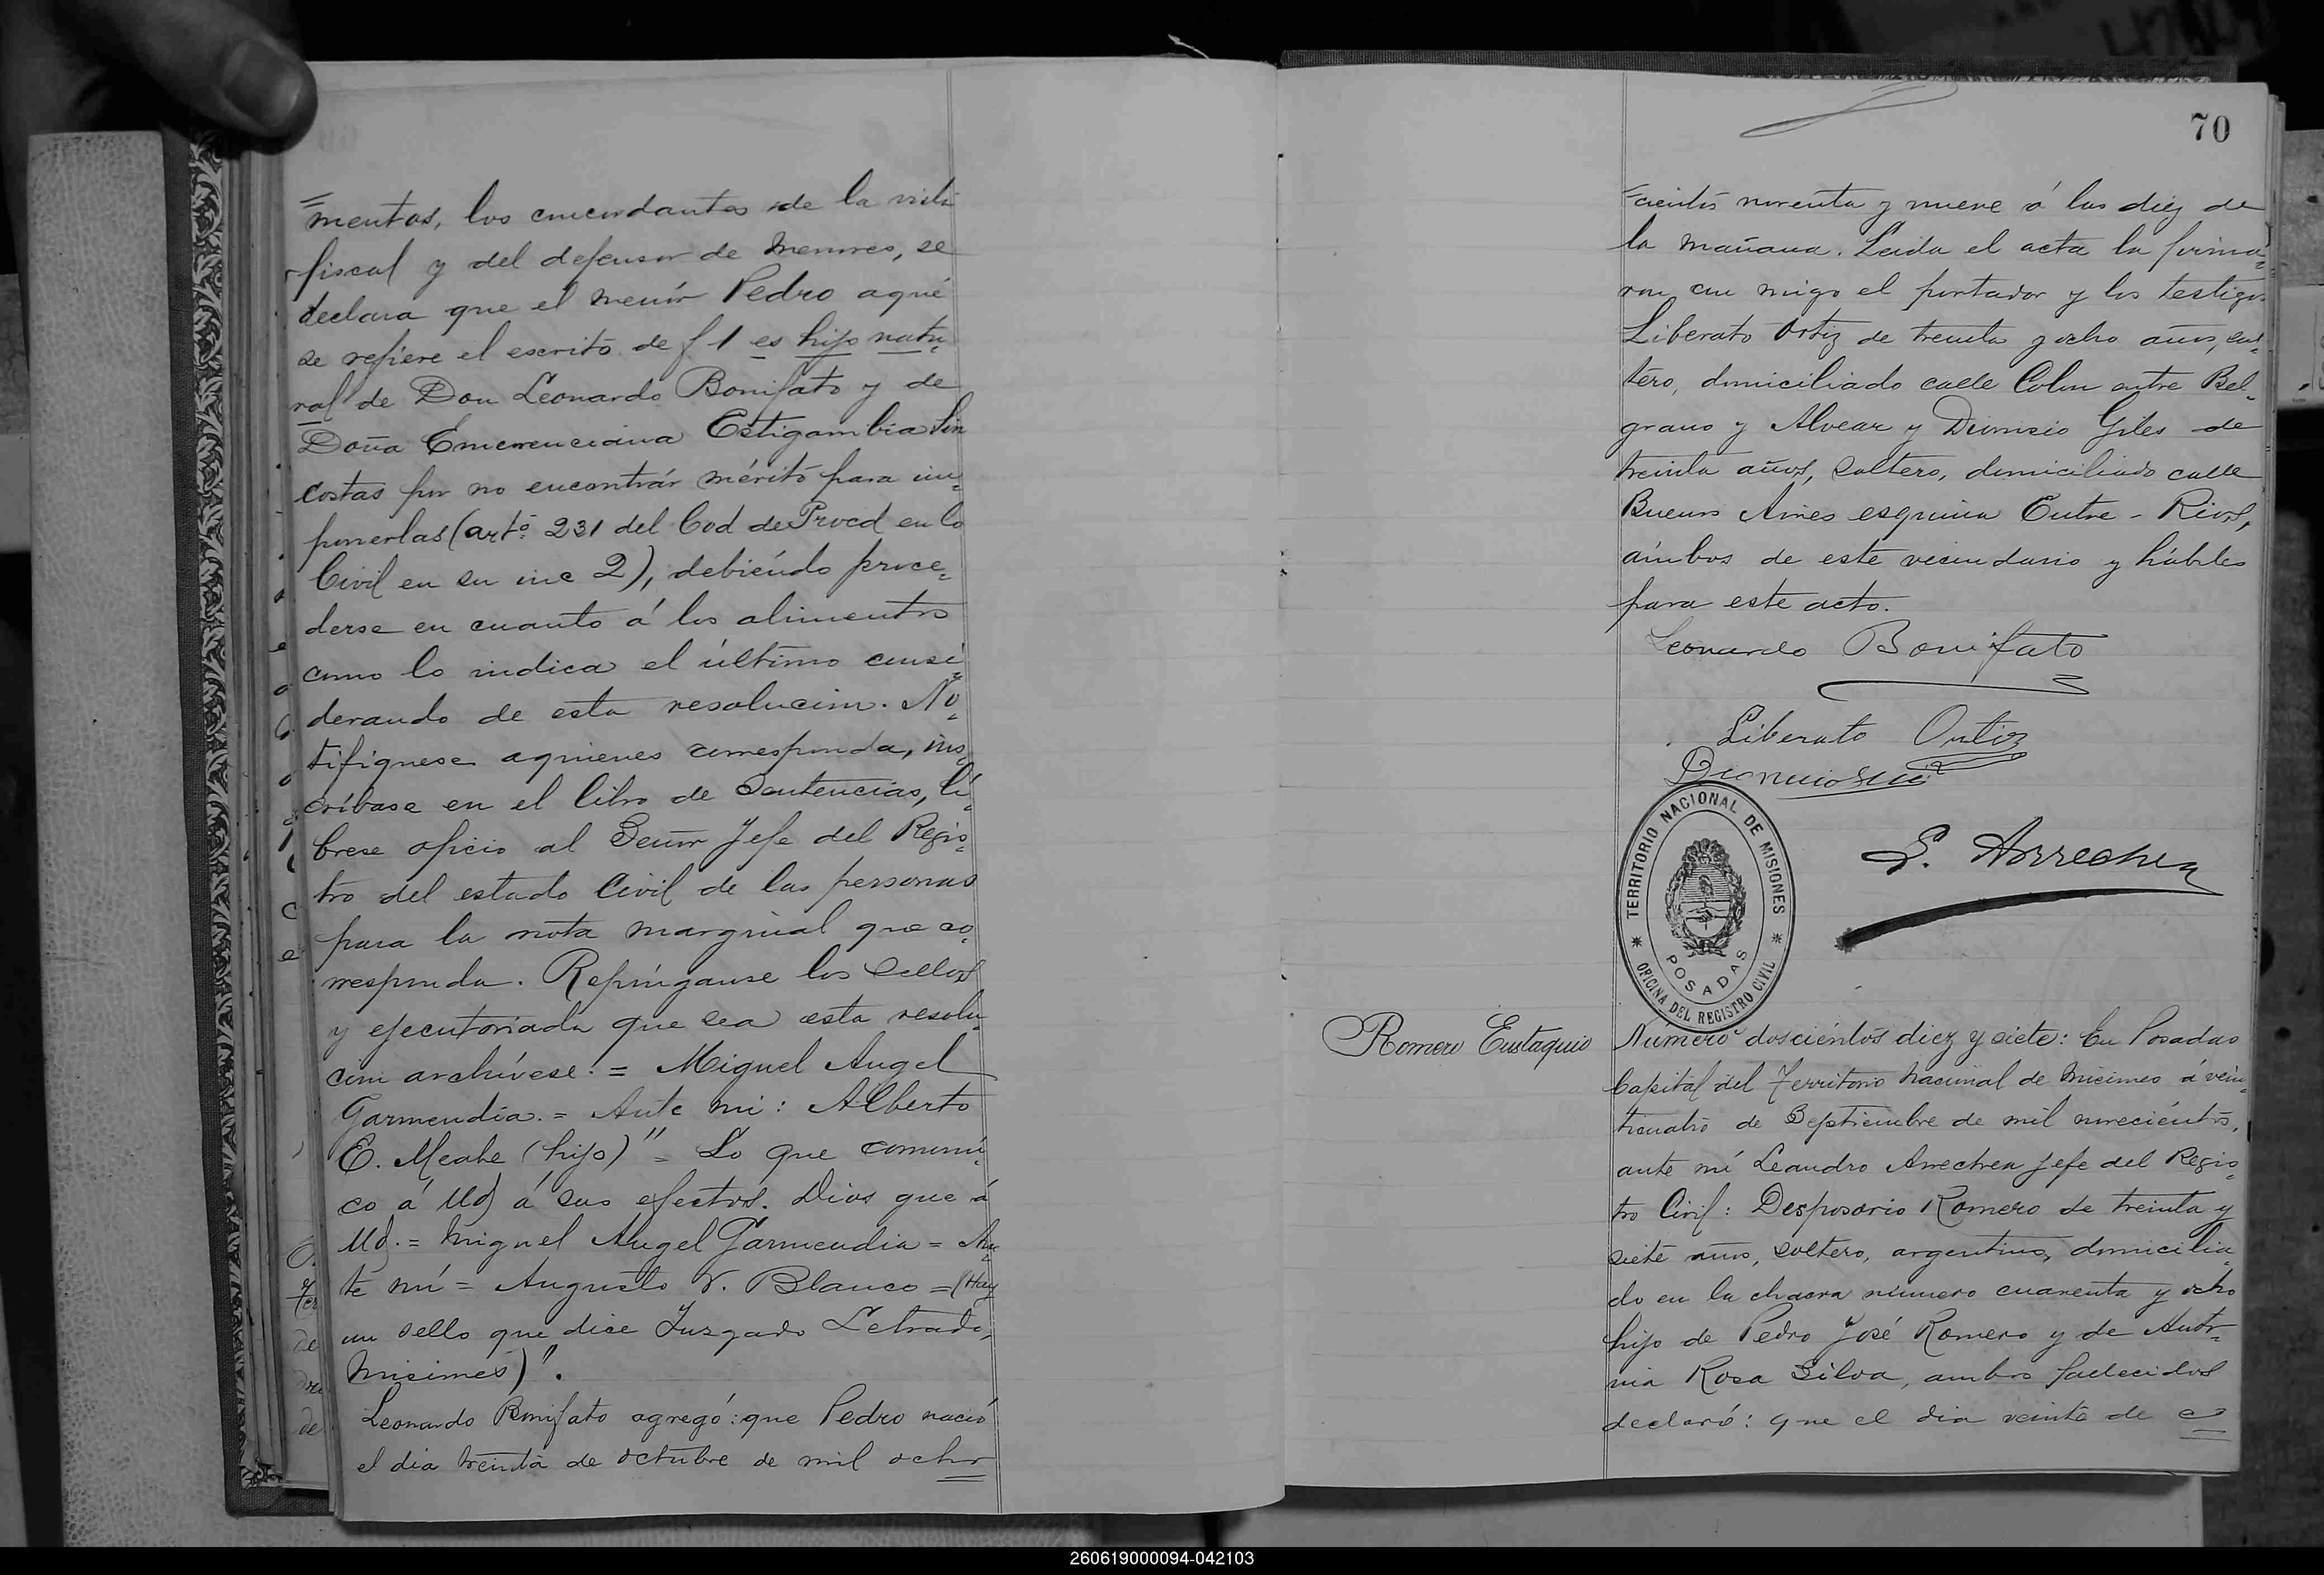 =mentos, los concordantes de la vista
fiscal y del defensor de Menores, se
declara que el menór Pedro aqué
se refiere el escrito de f 1 es hijo natu=
ral de Don Leonardo Bonifato y de
Doña Emerenciana Estigarribia sin
costas por no encontrár mérito para im=
ponerlas (artº 231 del Cod de Proced en lo
Civil en su inc 2), debiéndo proce=
derse en cuanto á los alimentos
como lo indica el último consi=
derando de esta resolucion. No=
tifiquese aquienes corresponda, ins=
críbase en el libro de Sentencias, lí=
brese oficio al Señor Jefe del Regis=
tro del estado Civil de las personas
para la nota marginal que co=
rresponda. Repóngause los sellos
y ejecutoriada que sea esta resolu=
cion archívese. = Miguel Angel
Garmendia. = Ante mi: Alberto
E. Meabe (hijo)" = Lo que comuni=
co á Ud á sus efectos. Dios gue á
Ud. = Miguel Angel Garmendia = An=
te mí = Augusto V. Blanco = (Hay
un sello que dice Juzgado Letrado,
Misiones)".
Leonardo Bonifato agregó: que Pedro nació
el dia treinta de octubre de mil ocho=
70
=cientos noventa y nueve á las diez de
la mañana. Leida el acta la firma=
ron con migo el portador y los testigos
Liberato Ortiz de treinta y ocho años, sol=
tero, domiciliado calle Colon entre Bel=
grano y Alvear y Dionisio Giles de
treinta años, soltero, domiciliado calle
Buenos Aires esquina Entre - Rios,
ámbos de este vecindario y hábiles
para este acto.
Leonardo Bonifato
Liberato Ortiz
Dionicio
L. Arrechea
TERRITORIO NACIONAL DE MISIONES
POSADAS
OFICINA DEL REGISTRO CIVIL
Romero Eustaquio
Número doscientos diez y siete: En Posadas
Capital del Territorio Nacional de Misiones á vein=
ticuatro de Septiembre de mil novecientos,
ante mí Leandro Arrechea Jefe del Regis=
tro Civil: Desposorio Romero de treinta y
siete años, soltero, argentino, domicilia=
do en la chacra número cuarenta y ocho
hijo de Pedro José Romero y de Anto=
nia Rosa Silva, ambos fallecidos
declaró: que el dia veinte de
260619000094-042103